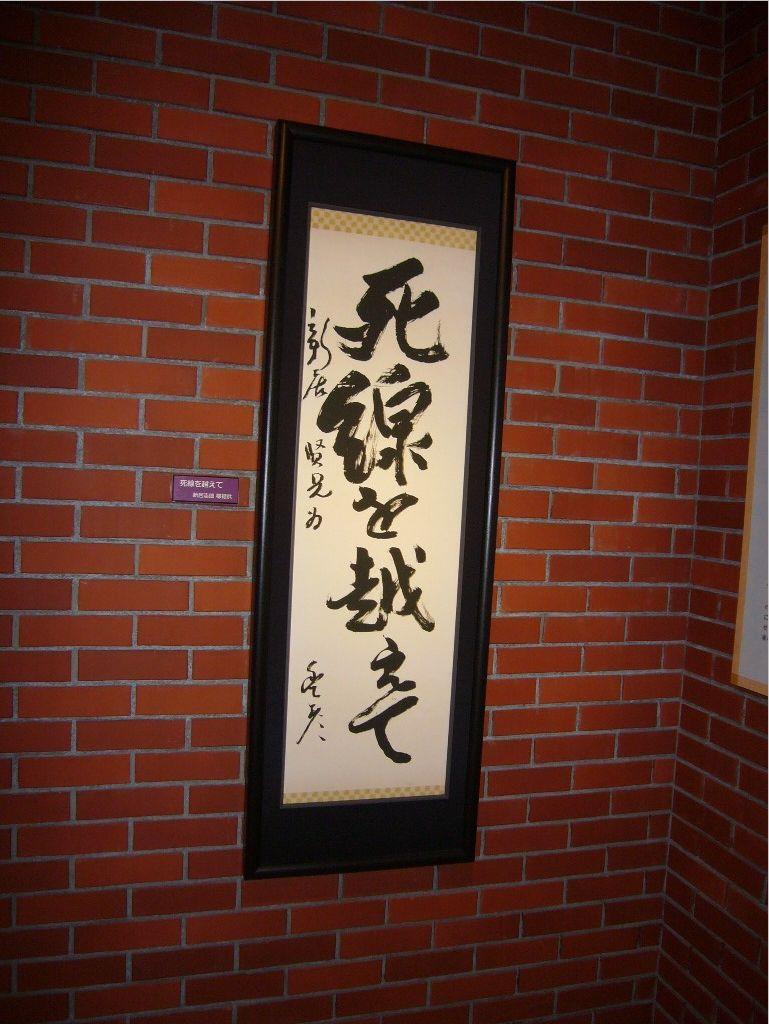 死線を越えて
新居賢兄为
豊彦
死線を越えて